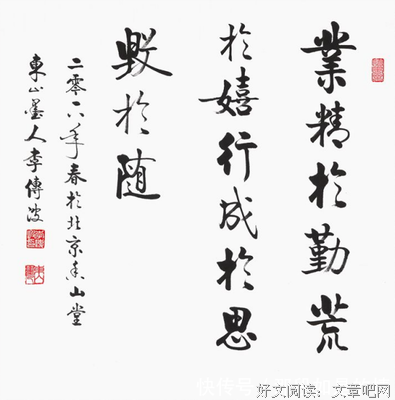 業精於勤荒
於嬉行成於思
毀於随
二零一八年春於北京山堂
東山墨人李傳波
快传号
好文阅读：文章吧网